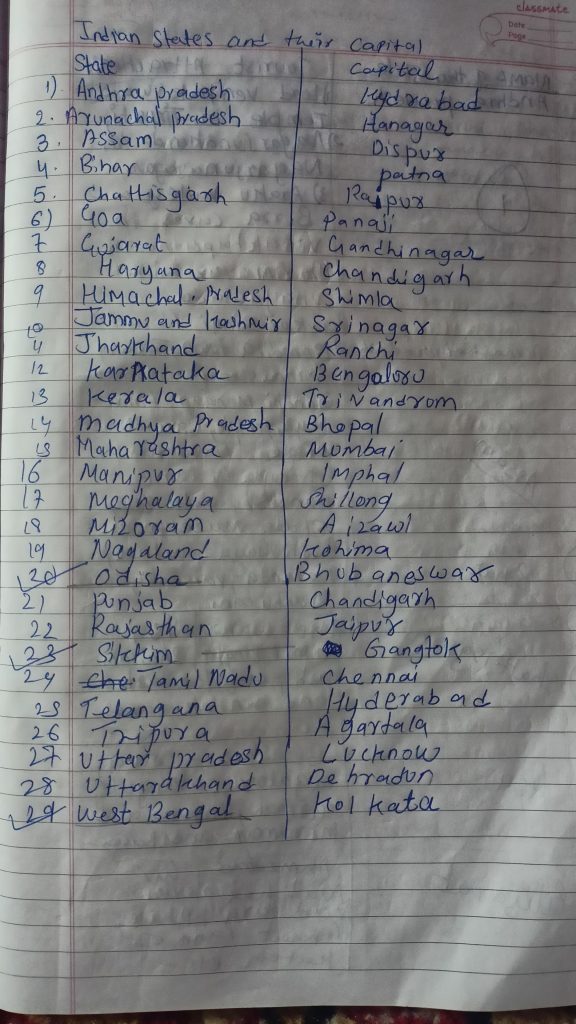 classmate
Date
Page
Indian States and their Capital
State Capital
1) Andhra pradesh Hydrabad
2. Arunachal pradesh Hanagar
3. Assam Dispur
4. Bihar patna
5. Chattisgarh Raipur
6) Goa Panaji
7 Gujarat Gandhinagar
8 Haryana Chandigarh
9 Himachal. Pradesh Shimla
10 Jammu and Kashmir Srinagar
11 Jharkhand Ranchi
12 Karnataka Bengaloru
13 Kerala Trivandrom
14 Madhya Pradesh Bhopal
15 Maharashtra Mombai
16 Manipur Imphal
17 Meghalaya Shillong
18 Mizoram Aizawl
19 Nagaland Kohima
20 Odisha Bhubaneswar
21 Punjab Chandigarh
22 Rajasthan Jaipur
23 Sikkim Gangtok
24 Che Tamil Nadu Chennai
25 Telangana Hyderabad
26 Tripura Agartala
27 Uttar pradesh Lucknow
28 Uttarakhand Dehradun
29 West Bengal Kolkata